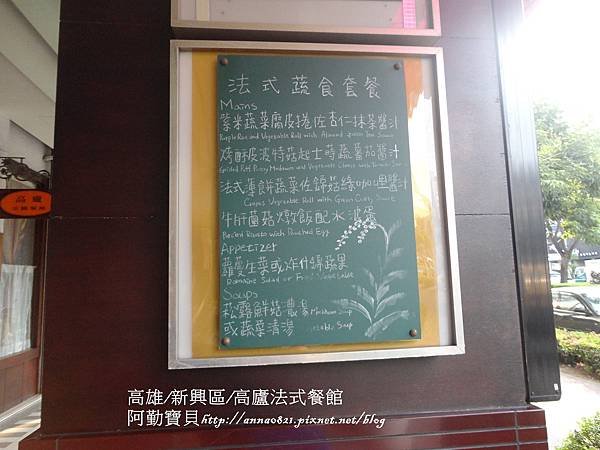 法式蔬食套餐
Mains
紫米蔬菜腐皮捲佐杏仁抹茶醬汁
Purple Rice and Vegetable Roll with Almond Green Tea Sauce
烤酥皮波特菇起士蒔蔬蕃茄醬汁
法式薄餅蔬菜佐錦菇綠咖哩醬汁
Crepes Vegetable Roll with Green Curry Sauce
牛肝菌菇燉飯配水波蛋
Risotto with Poached Egg
Appetizer
蘿蔓生菜或炸什錦蔬果
Romaine Salad or Fried Vegetable
Soups
松露鮮菇濃湯 Mushroom Soup
或蔬菜清湯 Vegetable Soup
高廬
高雄/新興區/高廬法式餐館
阿勤寶貝http://anna0821.pixnet.net/blog